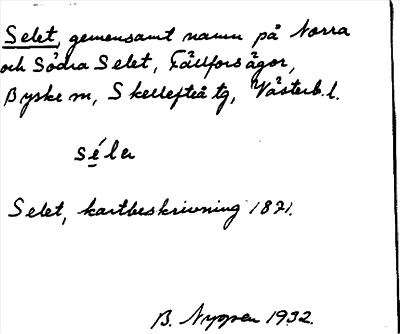 Selet, gemensamt namn på Norra
och Södra Selet, Fällforsågor,
Byske sn, Skellefteå tg, Västerb.l.
séla
Selet, kartbeskrivning 1871.
B. Nygren 1932.